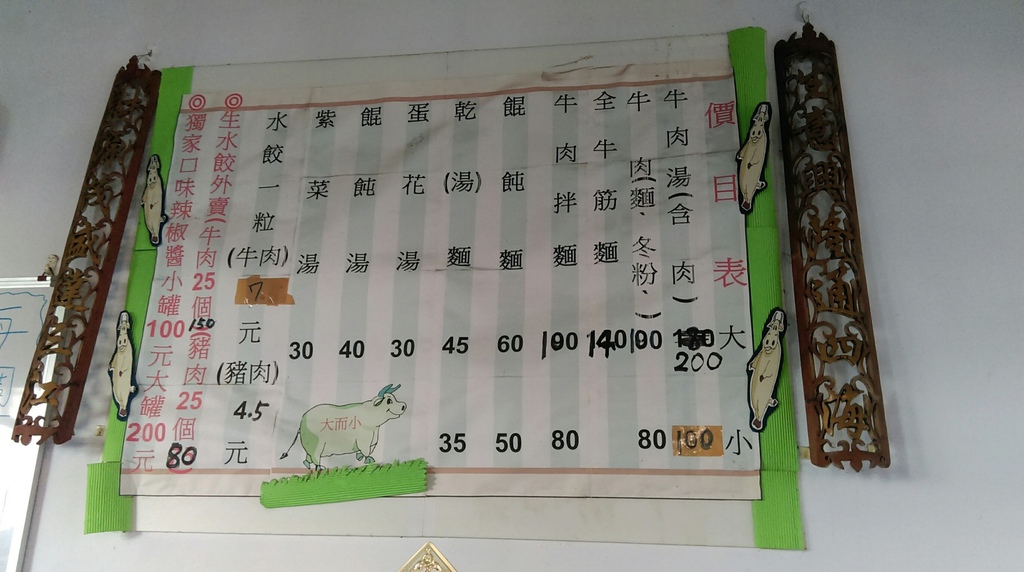 價目表
牛肉湯(含肉) 200 100
牛肉(麵、冬粉、) 100 80
全牛筋麵 140
牛肉拌麵 100 80
餛飩麵 60 50
乾(湯)麵 45 35
蛋花湯 30
餛飩湯 40
紫菜湯 30
水餃一粒(牛肉)7元(豬肉)4.5元
◎生水餃外賣(牛肉25個150(豬肉25個80)
◎獨家口味辣椒醬小罐100元大罐200元
大
小
大而小
生意興隆通四海
茂盛達三江